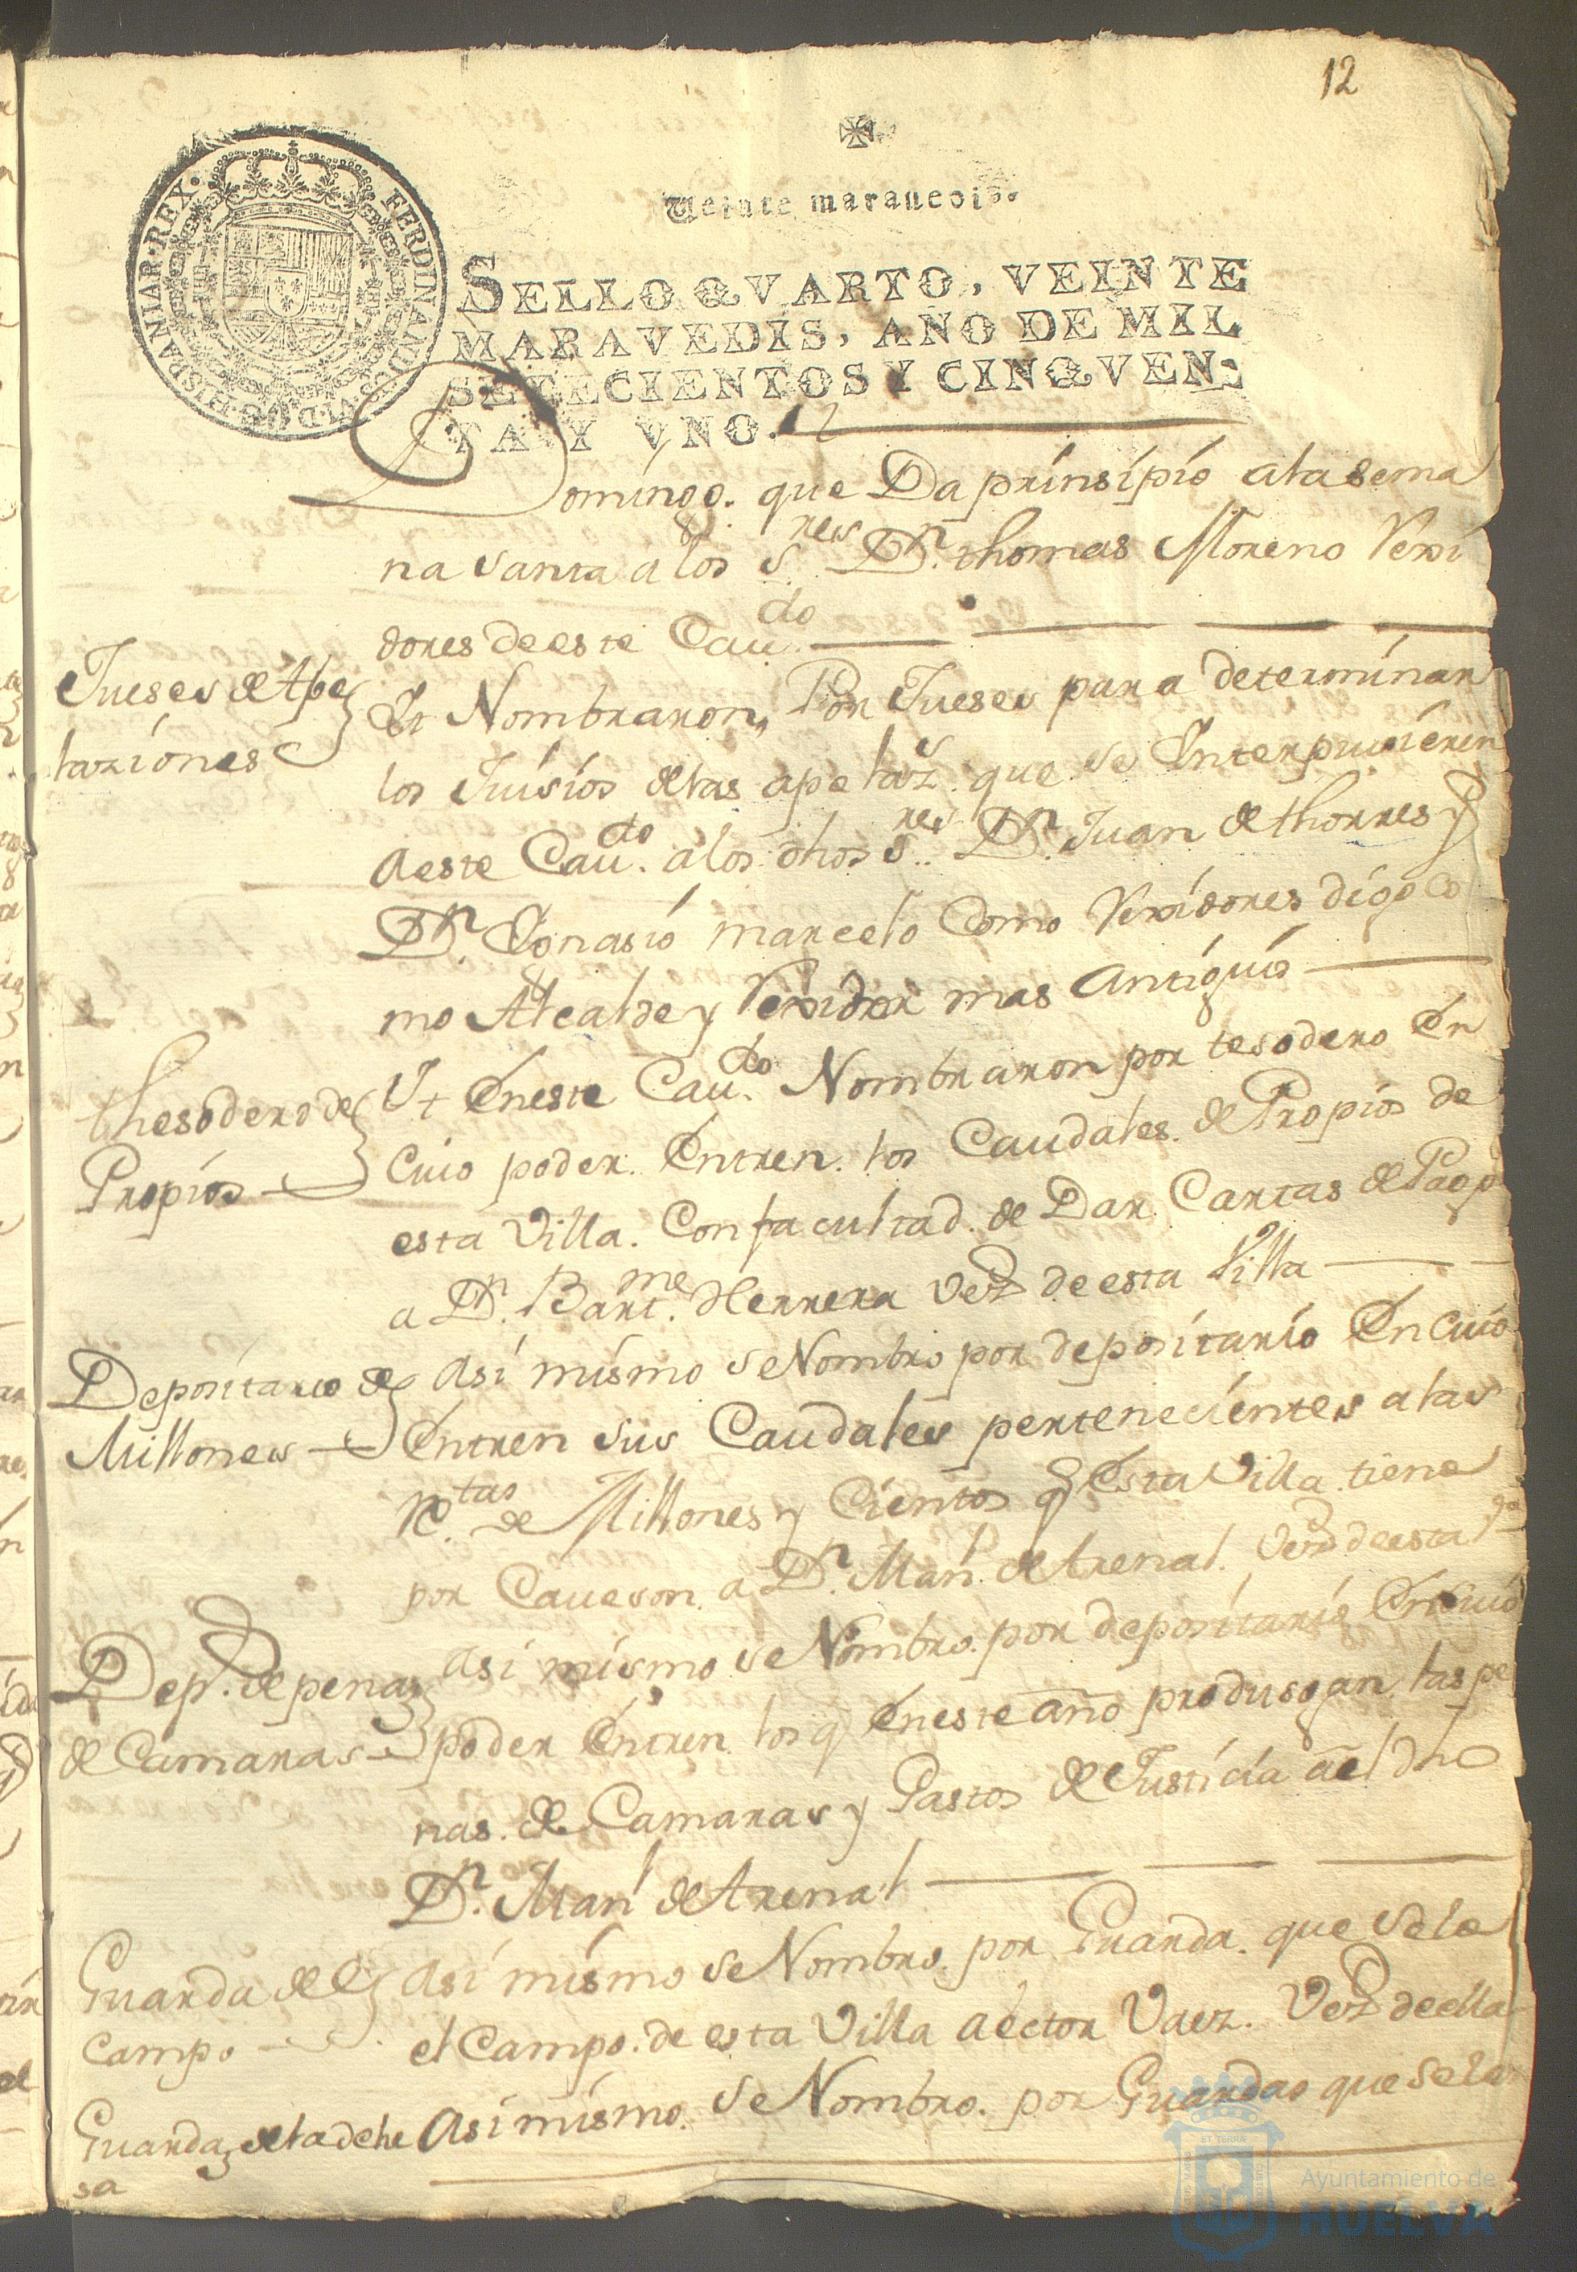 12
Veinte maravedis.
HISPANIAR·REX· FERDINANDUS·VI·D·G·
SELLO QVARTO, VEINTE
MARAVEDIS, AÑO DE MIL
SETECIENTOS Y CINQVEN-
TA Y VNO.
Domingo. que Da prinsipio ala sema
na santa a los S.res D.n thomas Moreno Rexi
dores de este Cau.do
Jueses de Ape
laziones
Yt Nombraron, Por Jueses para determinar
los Juisios de las apelaz.s que se Interpusieren
a este Cau.do a los dhos S.res D.n Juan de thorres y
D.n Ignasio marcelo Como Rexidores digo Co
mo Alcalde y Rexidor mas Antiguo
thesodero de
Propios
Yt En este Cau.do Nombraron por tesodero En
Cuio poder. Entren. los Caudales. de Propios de
esta Villa. Con facultad. de Dar Cartas de Pago
a D.n Bart.me Herrera Vez.o de esta Villa
Depositario de
Millones
Asi mismo se Nombro por depositario En Cuio
Entren sus Caudales pertenecientes a las
R.tas de Millones y Cientos q Esta Villa tiene
por Caueson. a D.n Man.l de Arenal. Vez.o de esta V.a
Dep.o de penas
de Camaras
Asi mismo se Nombro. por depositario En Cuio
poder Entren los q En este año produsgan. las pe
nas. de Camaras y Gastos de Justicia a el dho
D.n Man.l de Arenal
Guarda de el
Campo
Asi mismo se Nombro. por Guarda. que Sele
el Campo. de esta Villa a ector Vaez. Vez.o de ella
Guardas de la dehe
sa
Asi mismo. se Nombro. por Guardas que Selar
Ayuntamiento de
HUELVA